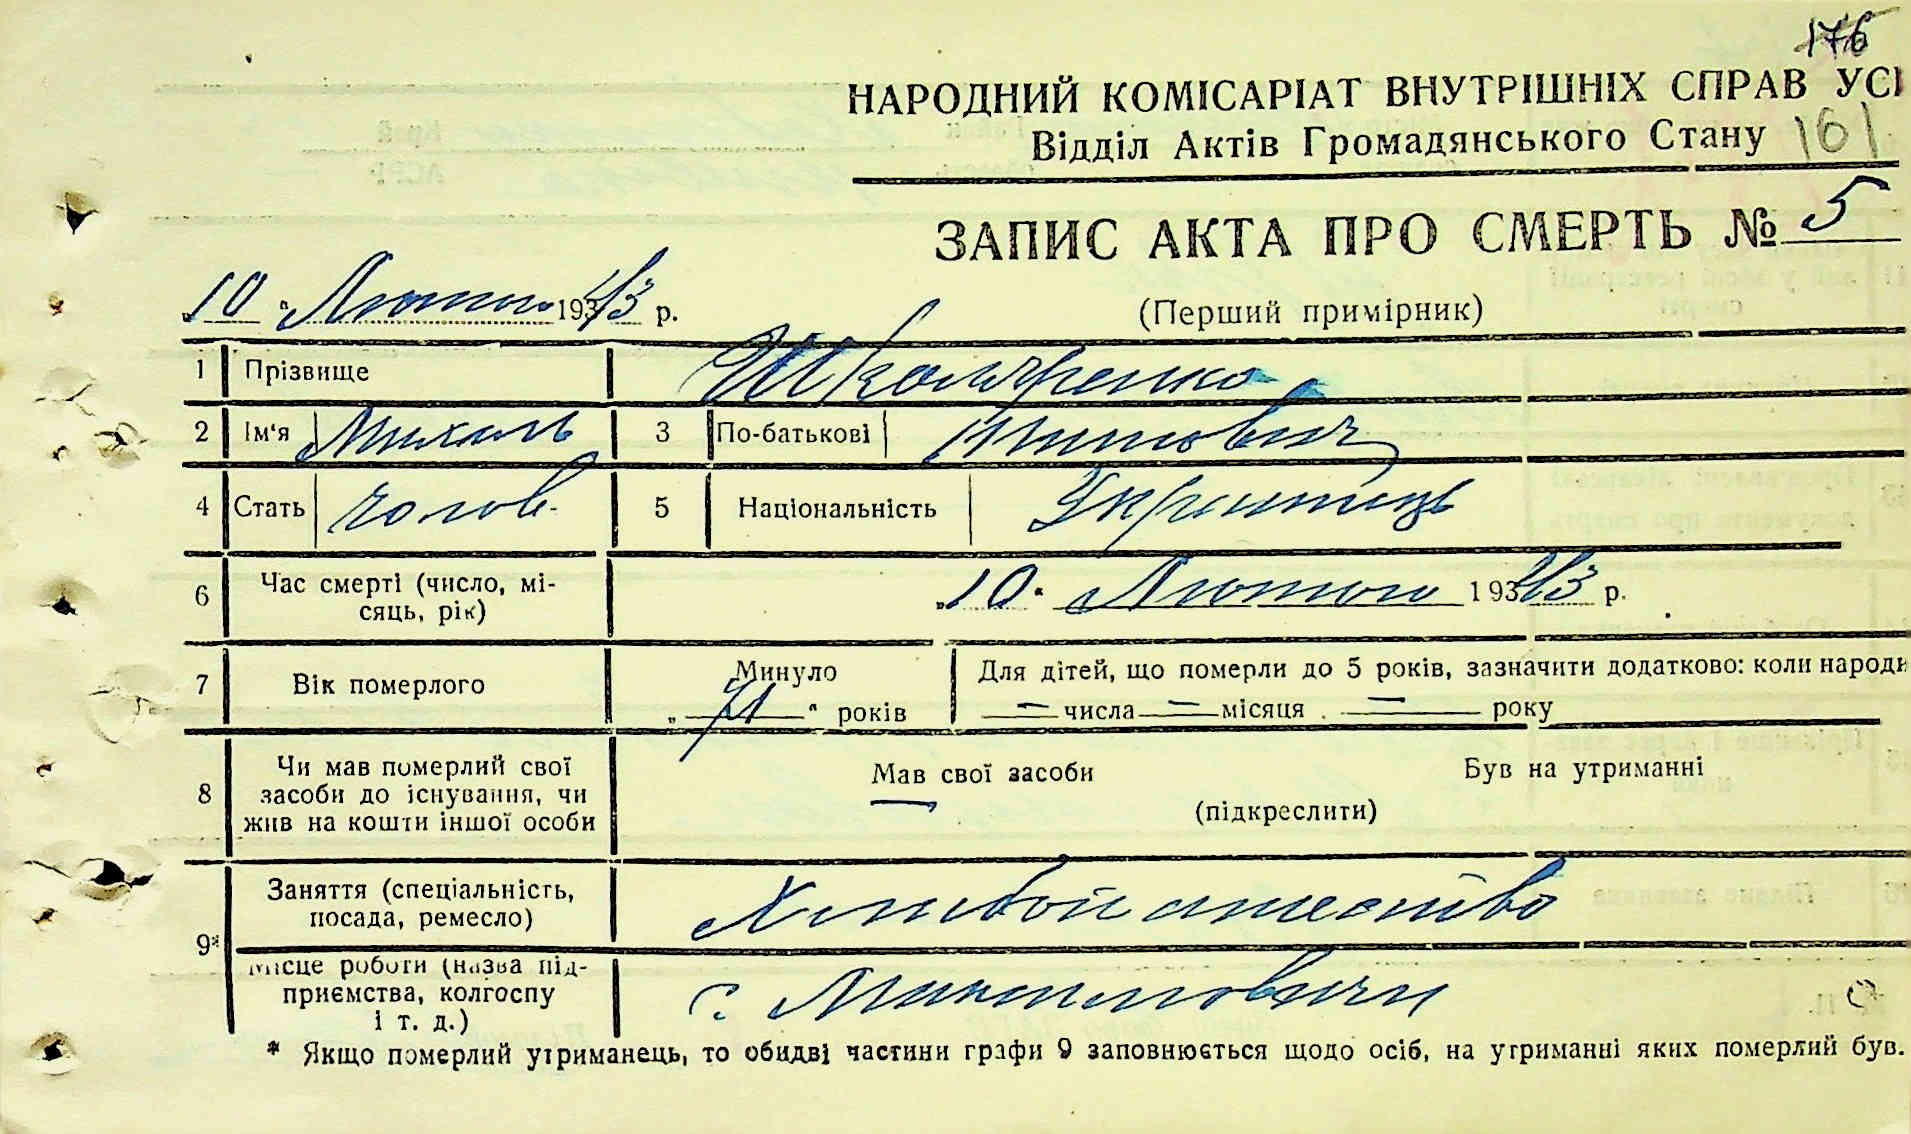 176
НАРОДНИЙ КОМІСАРІАТ ВНУТРІШНІХ СПРАВ УС
Відділ Актів Громадянського Стану 161
ЗАПИС АКТА ПРО СМЕРТЬ № 5
„10“ Лютого 1943 р. (Перший примірник)
1 Прізвище
2 Ім'я Михаль 3 По-батькові
4 Стать чолов. 5 Національність Українець
6 Час смерті (число, мі-
сяць, рік) „10“ Лютого 1943 р.
7 Вік померлого Минуло „71“ років Для дітей, що померли до 5 років, зазначити додатково: коли народ
— числа — місяця — року
8 Чи мав померлий свої
засоби до існування, чи
жив на кошти іншої особи
Мав свої засоби Був на утриманні
(підкреслити)
9* Заняття (спеціальність,
посада, ремесло) Хлібопашество
Місце роботи (назва під-
приємства, колгоспу
і т. д.) с. Максимовичи
* Якщо померлий утриманець, то обидві частини графи 9 заповнюється щодо осіб, на утриманні яких померлий був.